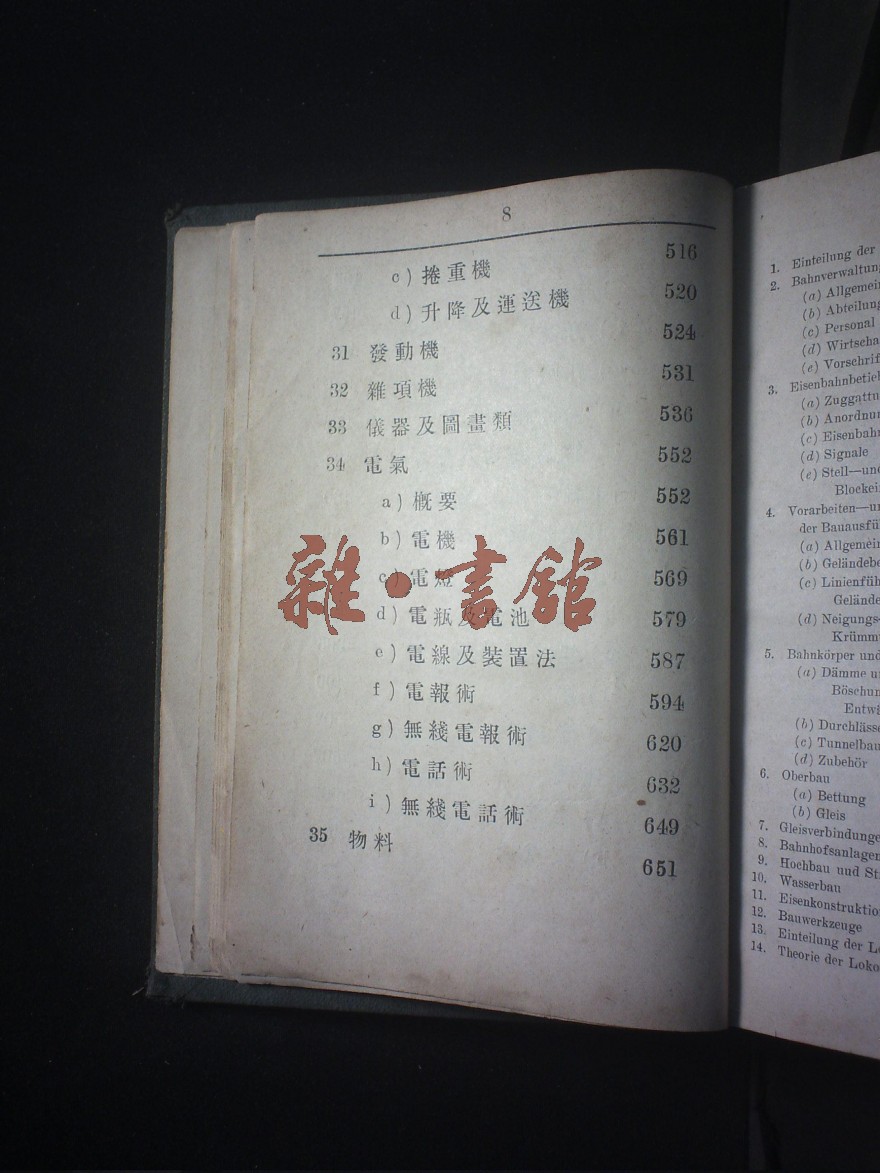 8
c) 捲重機 516
d) 升降及運送機 520
31 發動機 524
32 雜項機 531
33 儀器及圖畫類 536
34 電氣 552
a) 概要 552
b) 電機 561
c) 電燈 569
d) 電瓶及電池 579
e) 電線及裝置法 587
f) 電報術 594
g) 無綫電報術 620
h) 電話術 632
i) 無綫電話術 649
35 物料 651
雜·書館
1. Einteilung der
2. Bahnverwaltung
(a) Allgemei
(b) Abteilung
(c) Personal
(d) Wirtscha
(e) Vorschrif
3. Eisenbahnbetie
(a) Zuggattu
(b) Anordnu
(c) Eisenbahn
(d) Signale
(e) Stell—und
Blockei
4. Vorarbeiten—u
der Bauausfü
(a) Allgemein
(b) Geländebe
(c) Linienfüh
Gelände
(d) Neigungs-
Krümm
5. Bahnkörper und
(a) Dämme u
Böschun
Entwi
(b) Durchlässe
(c) Tunnelbau
(d) Zubehör
6. Oberbau
(a) Bettung
(b) Gleis
7. Gleisverbindunge
8. Bahnhofsanlagen
9. Hochbau und St
10. Wasserbau
11. Eisenkonstruktio
12. Bauwerkzeuge
13. Einteilung der L
14. Theorie der Loko